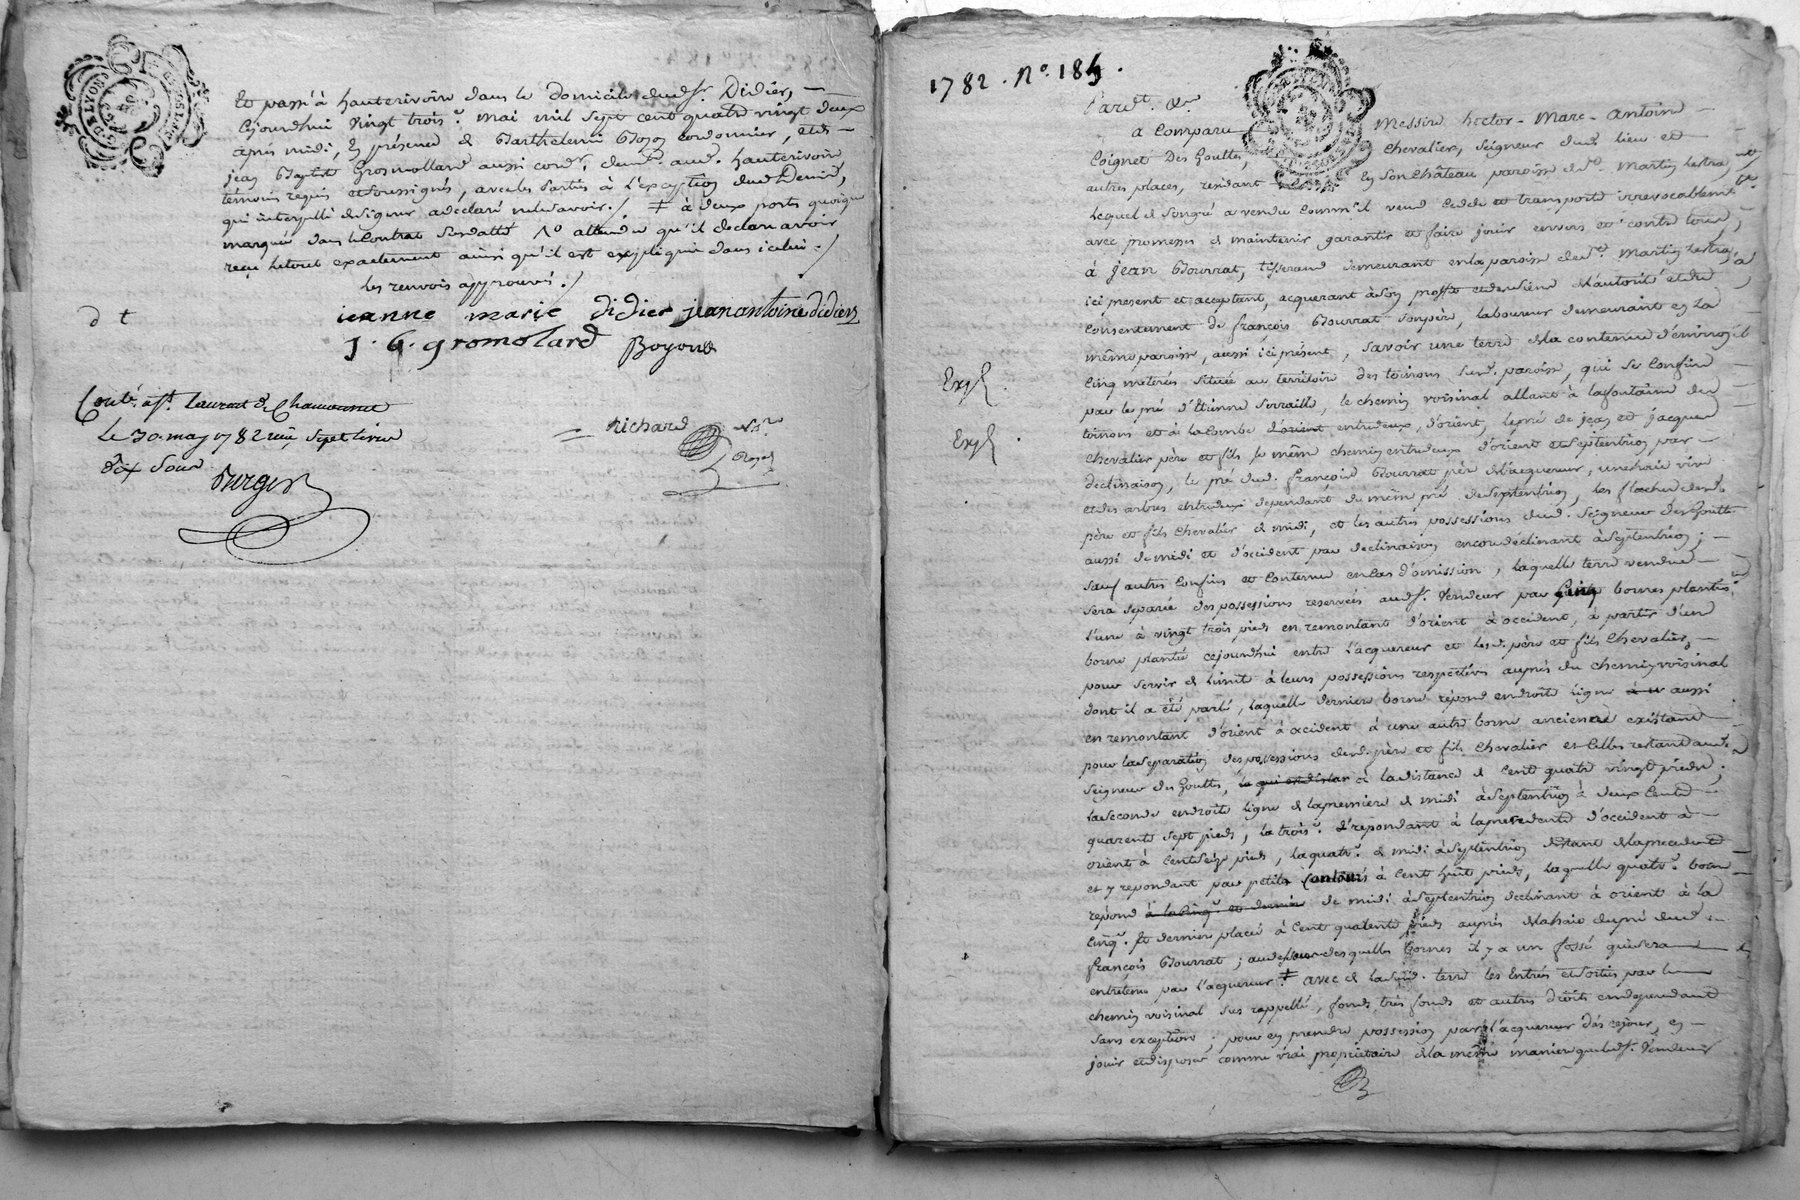 Et passé à hauterivoire dans le Domicile dud. Sr. Didier,
Cejourdhui vingt trois e. mai mil sept cent quatre vingt deux
après midi, En présence de Barthelemi Boyon cordonnier, et de
jean Baptiste Grosmollard aussi cord.r, dem.t aud. hauterivoire,
témoins requis et soussignés, avec les parties à l'exception dud. Denis,
qui interpellé de signer a déclaré ne le savoir ./ ‡ à deux ports quoique
marqué dans le Contrat susdatté N.o attendu qu'il declare avoir
reçu le tout exactement ainsi qu'il est expliqué dans icelui ./
les renvois approuvés ./
d t
jeanne marie didier jean antoine didier
J. b. gromolard Boyon
Conté. à St. Laurent de Chamousset
Le 30. may 1782 reçu sept livres
dix sous
richard No.re
Royal
Purget
1782. No. 184.
Pard.t &a
a Comparu Messire hector-Marc-Antoine
Coignet Des Gouttes, chevalier, seigneur dud. lieu et
autres places, residant En son Château paroisse de St. Martin Lestra
Lequel de son gré a vendu comm'il vend cedde et transporte irrevocablement
avec promesses de maintenir garantir et faire jouir envers et contre tous,
à jean Bourrat, tisserand demeurant en la paroisse de St. Martin Lestra,
ici present et acceptant, acquerant à son proffit et de l'autorité et du
Consentement de françois Bourrat son père, laboureur demeurant en la
même paroisse, aussi ici présent, savoir une terre de la contenue d'environ
Cinq meterés située au territoire des toinons sud. paroisse, qui se confine
Exp.é
par le pré d'Etienne Serraille, le chemin voisinal allant à la fontaine des
toinons et à la Combe d'orient entredeux, d'orient, le pré de jean et jacques
Exp.é
Chevalier père et fils le même chemin entredeux d'orient et septentrion par
declinaison, le pré dud. françois Bourrat père de l'acquereur, une haie vive
et des arbres entredeux dependant du même pré de septentrion, les flaches desd.
père et fils Chevalier de midi, et les autres possessions dud. Seigneur Des Gouttes
aussi de midi et d'occident par declinaison encor declinant à septentrion;
sauf autres confins et contenue en cas d'omission, laquelle terre vendue
sera separée des possessions reservées aud. Sr. Vendeur par cinq bornes plantées
l'une à vingt trois pieds en remontant d'orient à occident, à partir d'une
borne plantée cejourdhui entre l'acquereur et lesd. père et fils Chevalier,
pour servir de limite à leurs possessions respectives auprès du chemin voisinal
dont il a été parlé, laquelle derniere borne repond en droite ligne aussi
en remontant d'orient à occident à une autre borne ancienne existante
pour la separation des possessions desd. père et fils Chevalier et celles restant aud.
Seigneur des Gouttes, à la distance de cent quatre vingt pieds;
la seconde en droite ligne de la premiere de midi à septentrion à deux Cents
quarente sept pieds, la trois.e repondant à la precedente d'occident à
orient à cent seize pieds, la quatr.e de midi à septentrion distant de la precedente
et y repondant par petits Contours à cent huit pieds, laquelle quatr.e borne
repond à la cinq.e et derniere de midi à septentrion declinant à orient à la
cinq.e Et derniere placée à cent quarente pieds auprès de la haie du pré dud.
françois Bourrat; au dessous desquelles bornes il y a un fossé qui sera
entretenu par l'acquereur ‡ avec de lad. terre les entrées et sorties par le
chemin voisinal sus rappellé, fonds, très fonds et autres droits en dependant
sans exception; pour en prendre possession par l'acquereur dès ce jour, en
jouir et disposer comme vrai proprietaire de la même maniere que led. Sr. Vendeur